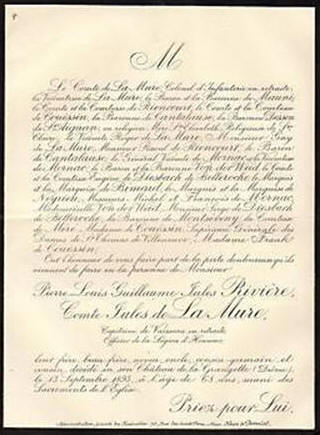 M
Le Comte de La Mure, Colonel d'Infanterie en retraite,
la Vicomtesse de La Mure, le Baron et la Baronne de
le Comte et la Comtesse de Rioncourt, le Comte et la Comtesse
de Couëssin, la Baronne de Cantalause, la Baronne
de St Aignan, en religion Mère Ste Elisabeth, Religieuse de Ste
Claire, le Vicomte Roger de La Mure, Monsieur Guy
de La Mure, Monsieur Raoul de Rioncourt, le Baron
de Cantalause, le Général Vicomte de Mornac, la Vicomtesse
de Mornac, le Baron et la Baronne le Comte
et la Comtesse Eugène de Diesbach de Belleroche, le Marquis
et la Marquise de le Marquis et la Marquise de
Messieurs Michel et François de Mornac,
Mademoiselle Monsieur Serge de Diesbach
de Belleroche, la Baronne de la Comtesse
de Madame de Couëssin, Supérieure Générale des
Dames de St Thomas de Villeneuve, Madame Frank
de Couëssin;
Ont l'honneur de vous faire part de la perte douloureuse qu'ils
viennent de faire en la personne de Monsieur
Pierre Louis Guillaume Jules Rivière,
Comte Jules de La Mure,
Capitaine de Vaisseau en retraite,
Officier de la Légion d'Honneur,
leur père, beau-père, neveu, oncle, cousin-germain et
cousin, décédé en son Château de la (Drôme),
le 13 Septembre 1893, à l'âge de 63 ans, muni des
Sacrements de l'Eglise.
Priez pour Lui.